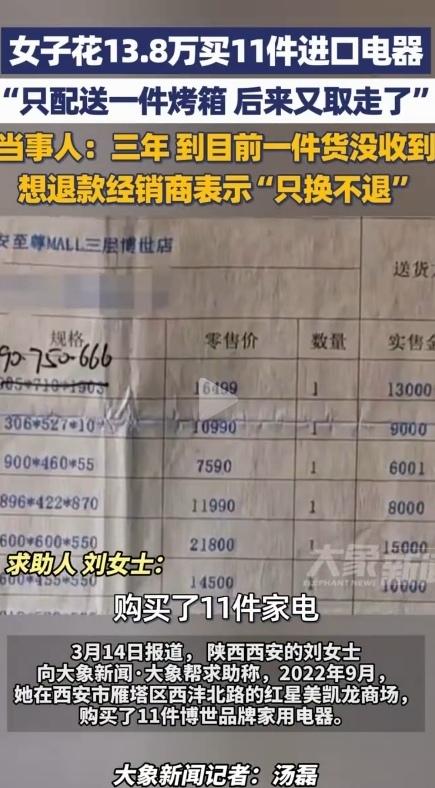 女子花13.8万买11件进口电器
“只配送一件烤箱 后来又取走了”
当事人：三年 到目前一件货没收到
想退款经销商表示“只换不退”
安至尊MALL三层博世店
送货方
规格 零售价 数量 实售金
90-750-666
905*710*1903 16499 1 13000
306*527*10 10990 1 9000
900*460*55 7590 1 6001
896*422*870 11990 1 8000
600*600*550 21800 1 15000
600*455*550 14500 1 10000
大象新闻
ELEPHANT NEWS
求助人 刘女士：
购买了11件家电
3月14日报道，陕西西安的刘女士
向大象新闻·大象帮求助称，2022年9月，
她在西安市雁塔区西沣北路的红星美凯龙商场，
购买了11件博世品牌家用电器。
大象新闻记者：汤磊